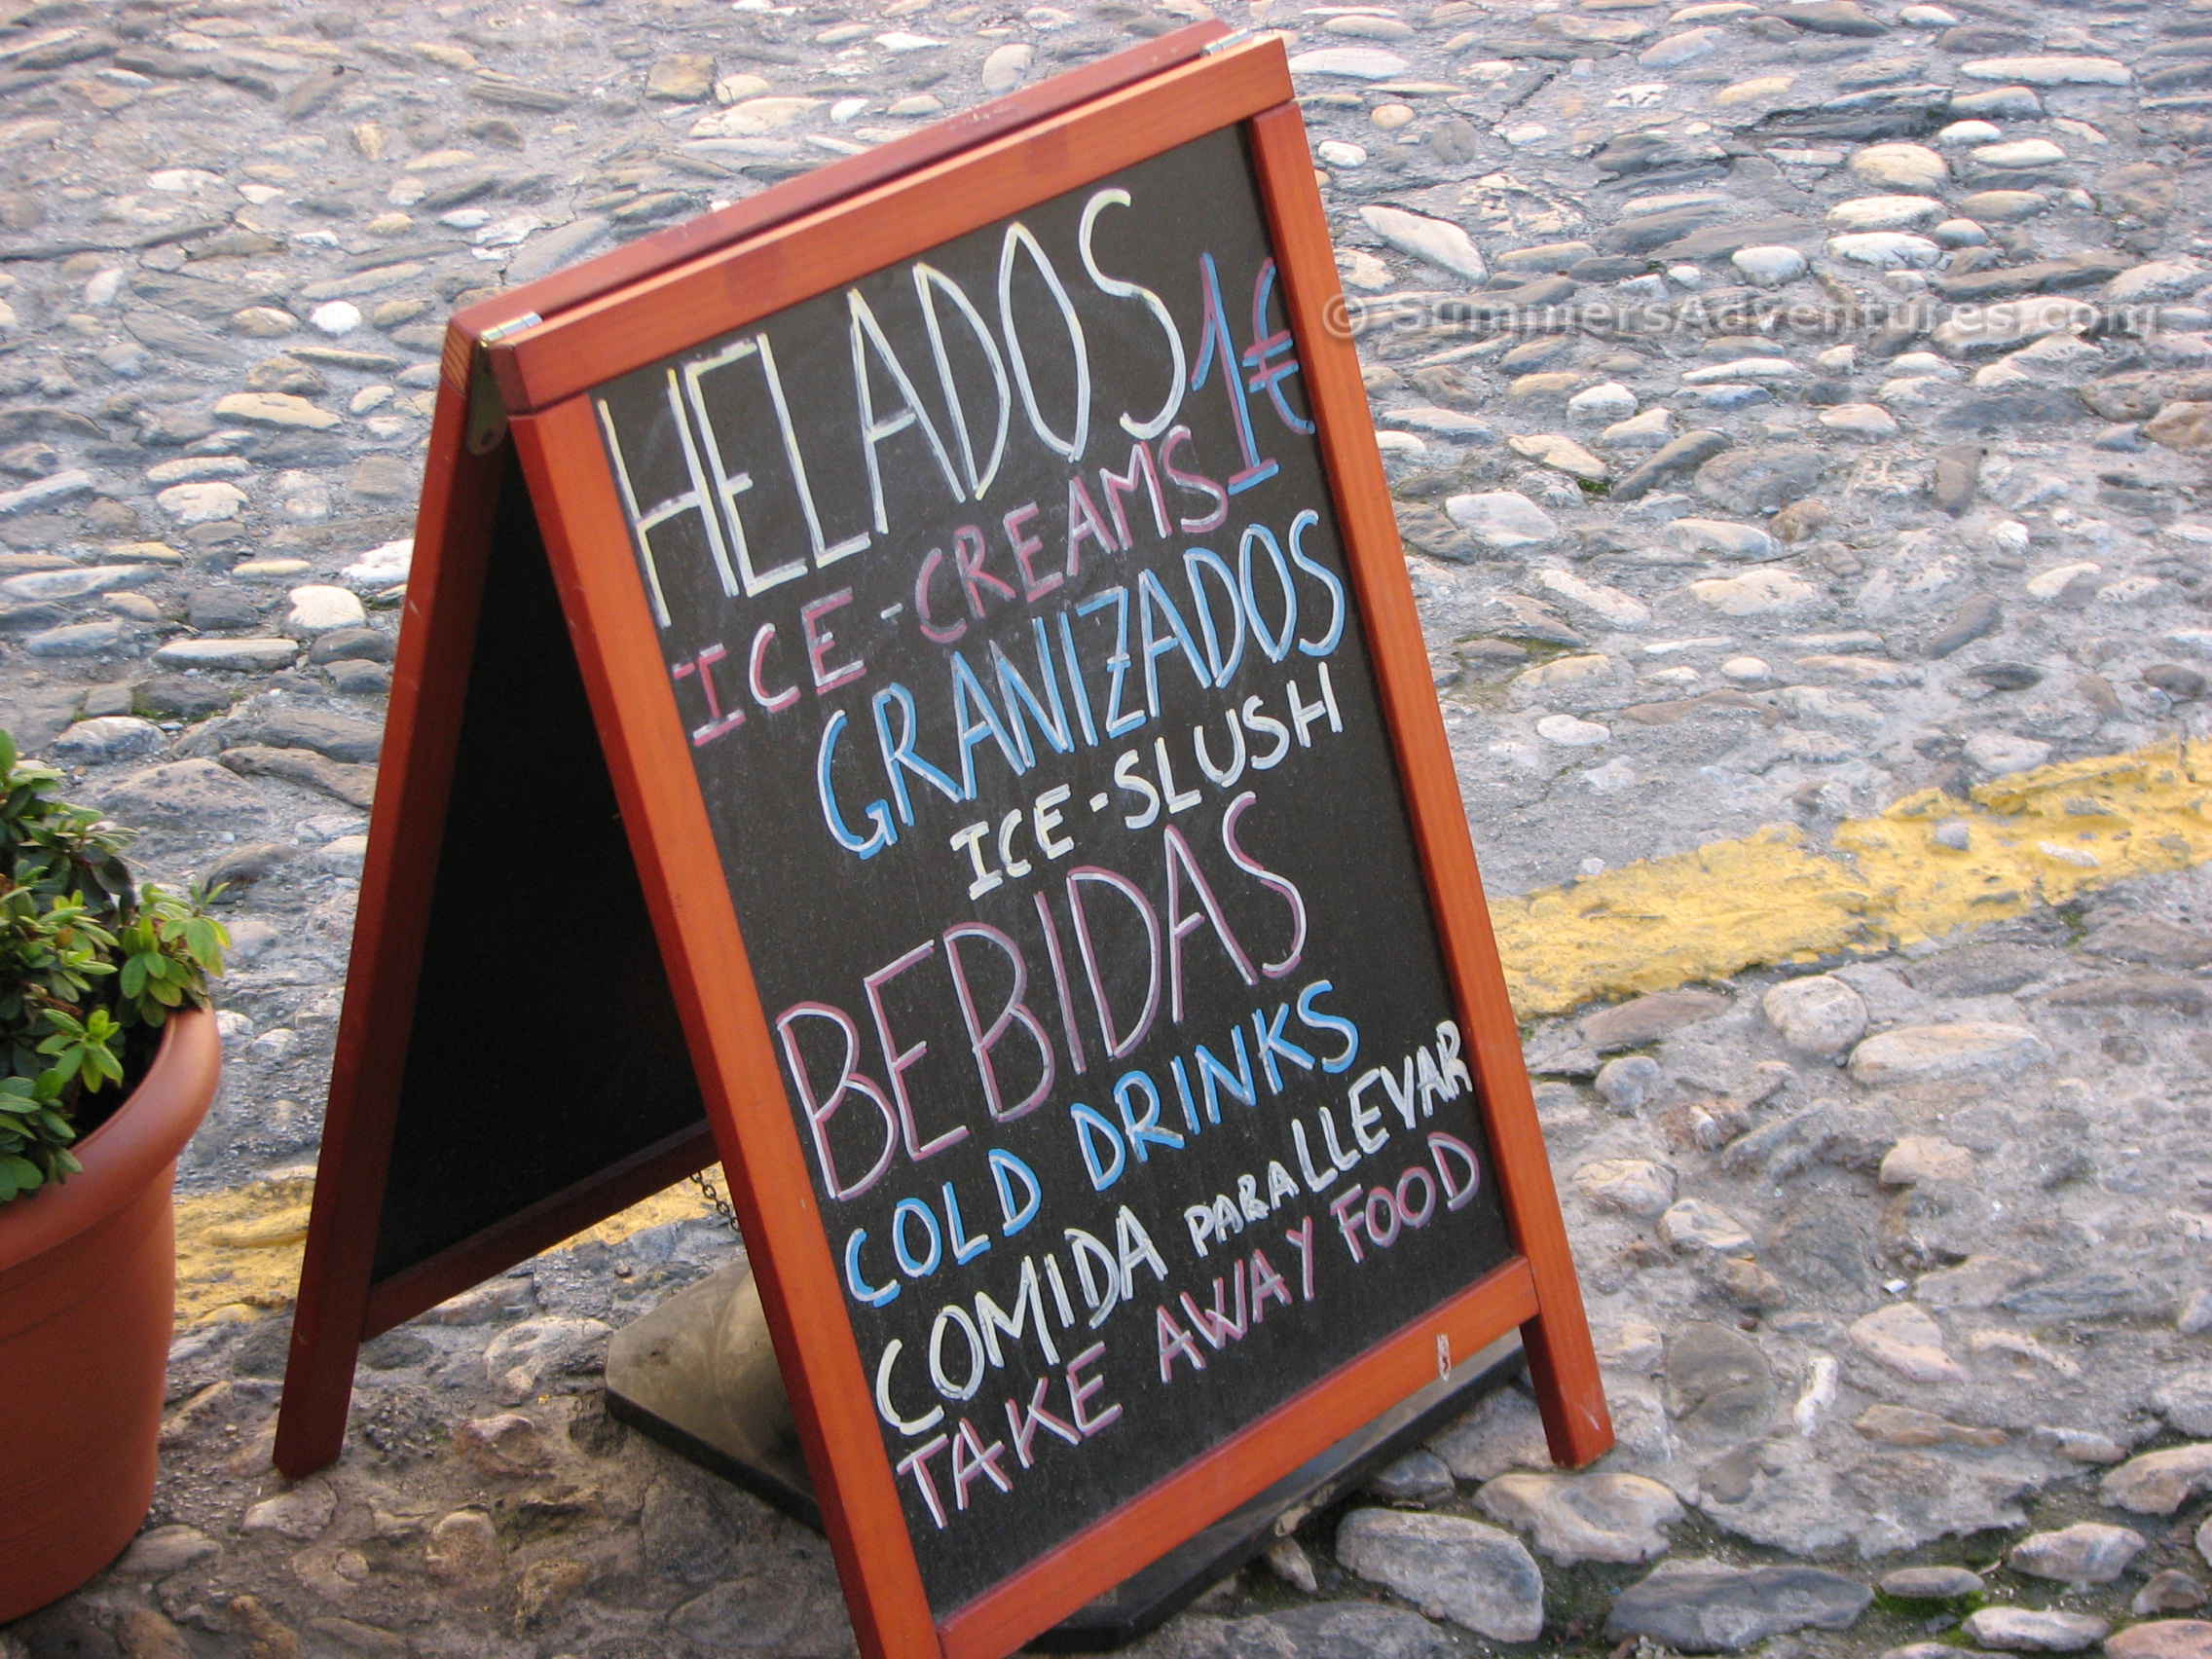 HELADOS 1€
ICE-CREAMS
GRANIZADOS
ICE-SLUSH
BEBIDAS
COLD DRINKS
COMIDA PARA LLEVAR
TAKE AWAY FOOD
© SummersAdventures.com